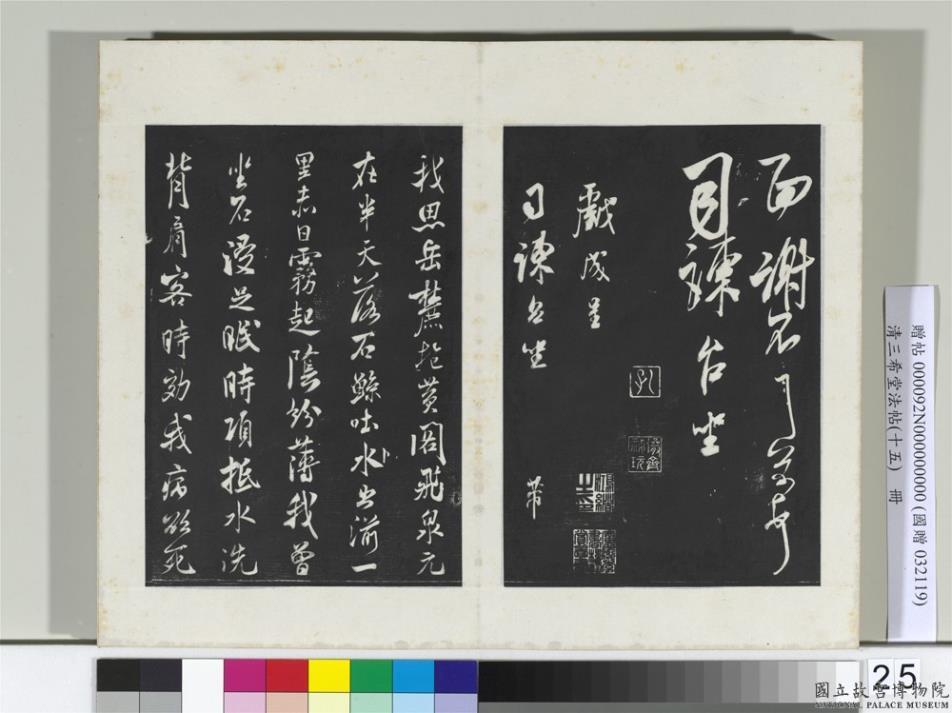 面謝不
司諫台坐
戲成呈
司諫台坐
芾
我思岳麓抱黃閣飛泉元
在半天落石鯨吐水出湔一
里赤日霧起陰紛薄我曾
坐石浸足眠時項抵水洗
背肩客時効我病欲死
贈帖 000092N000000000 (國贈 032119)
清三希堂法帖(十五) 冊
25
國立故宮博物院
NATIONAL PALACE MUSEUM